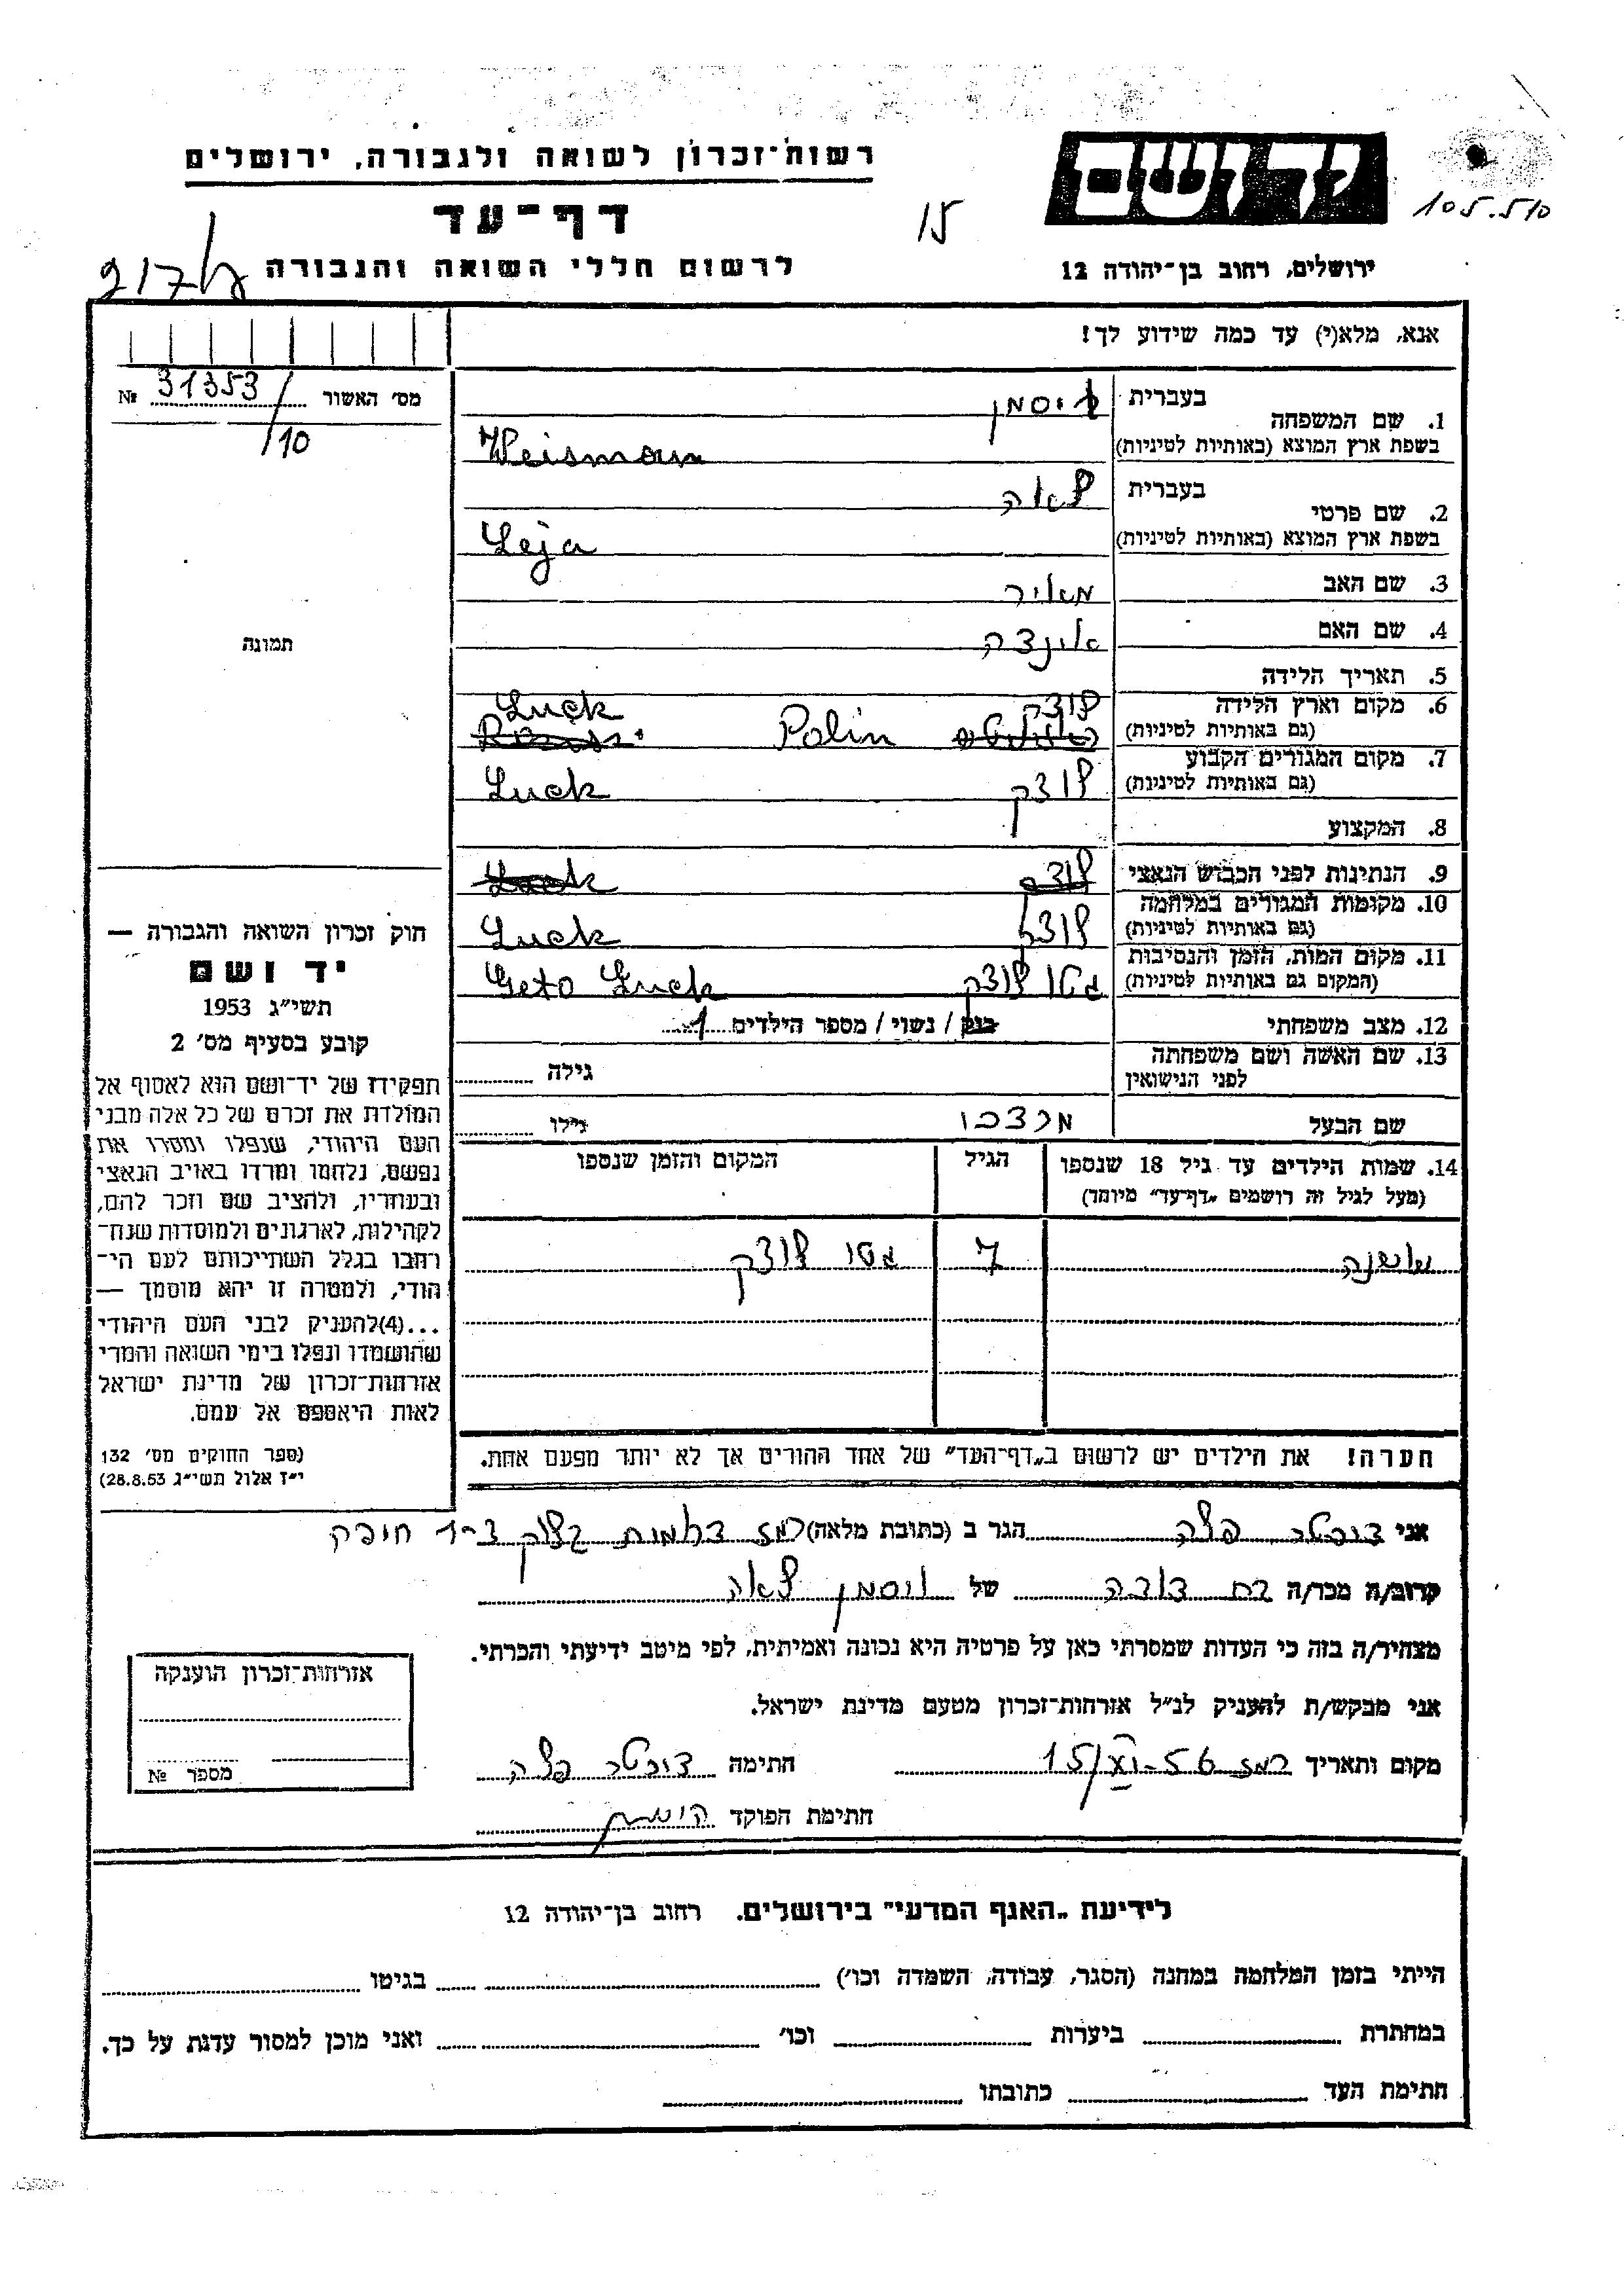 רשות־זכרון לשואה ולגבורה, ירושלים
יד ושם
105.510
דף־עד
15
לרשום חללי השואה והגבורה
ירושלים, רחוב בן־יהודה 12
אנא, מלא(י) עד כמה שידוע לך!
מס׳ האשור № 31353/10
1. שם המשפחה בעברית ויסמן
בשפת ארץ המוצא (באותיות לטיניות) Weisman
2. שם פרטי בעברית לאה
בשפת ארץ המוצא (באותיות לטיניות) Leja
3. שם האב מאיר
4. שם האם
תמונה
5. תאריך הלידה
6. מקום וארץ הלידה לוצק Luck
(גם באותיות לטיניות) Polin
7. מקום המגורים הקבוע
(גם באותיות לטיניות) לוצק Luck
8. המקצוע
9. הנתינות לפני הכבוש הנאצי
10. מקומות המגורים במלחמה
(גם באותיות לטיניות) לוצק Luck
11. מקום המות, הזמן והנסיבות
(המקום גם באותיות לטיניות) גטו לוצק Geto Luck
12. מצב משפחתי רווק / נשוי / מספר הילדים 1
13. שם האשה ושם משפחתה
לפני הנישואין גילה
שם הבעל גילו
14. שמות הילדים עד גיל 18 שנספו הגיל המקום והזמן שנספו
(מעל לגיל זה רושמים „דף־עד” מיוחד)
שושנה 7 גטו לוצק
הערה! את הילדים יש לרשום ב„דף־העד” של אחד ההורים אך לא יותר מפעם אחת.
חוק זכרון השואה והגבורה —
יד ושם
תשי״ג 1953
קובע בסעיף מס׳ 2
תפקידו של יד־ושם הוא לאסוף אל
המולדת את זכרם של כל אלה מבני
העם היהודי, שנפלו ומסרו את
נפשם, נלחמו ומרדו באויב הנאצי
ובעוזריו, ולהציב שם וזכר להם,
לקהילות, לארגונים ולמוסדות שנח־
רבו בגלל השתייכותם לעם הי־
הודי, ולמטרה זו יהא מוסמך —
...(4)להעניק לבני העם היהודי
שהושמדו ונפלו בימי השואה והמרי
אזרחות־זכרון של מדינת ישראל
לאות היאספם אל עמם.
(ספר החוקים מס׳ 132
י״ז אלול תשי״ג 28.8.53)
אני הגר ב (כתובת מלאה) חיפה
קרוב/ה מכר/ה בת דודה של ויסמן לאה
מצהיר/ה בזה כי העדות שמסרתי כאן על פרטיה היא נכונה ואמיתית, לפי מיטב ידיעתי והכרתי.
אני מבקש/ת להעניק לנ״ל אזרחות־זכרון מטעם מדינת ישראל.
מקום ותאריך חתימה
חתימת הפוקד
אזרחות־זכרון הוענקה
מספר №
לידיעת „האגף המדעי” בירושלים. רחוב בן־יהודה 12
הייתי בזמן המלחמה במחנה (הסגר, עבודה, השמדה וכו׳) בגיטו
במחתרת ביערות וכו׳ ואני מוכן למסור עדות על כך.
חתימת העד כתובתו